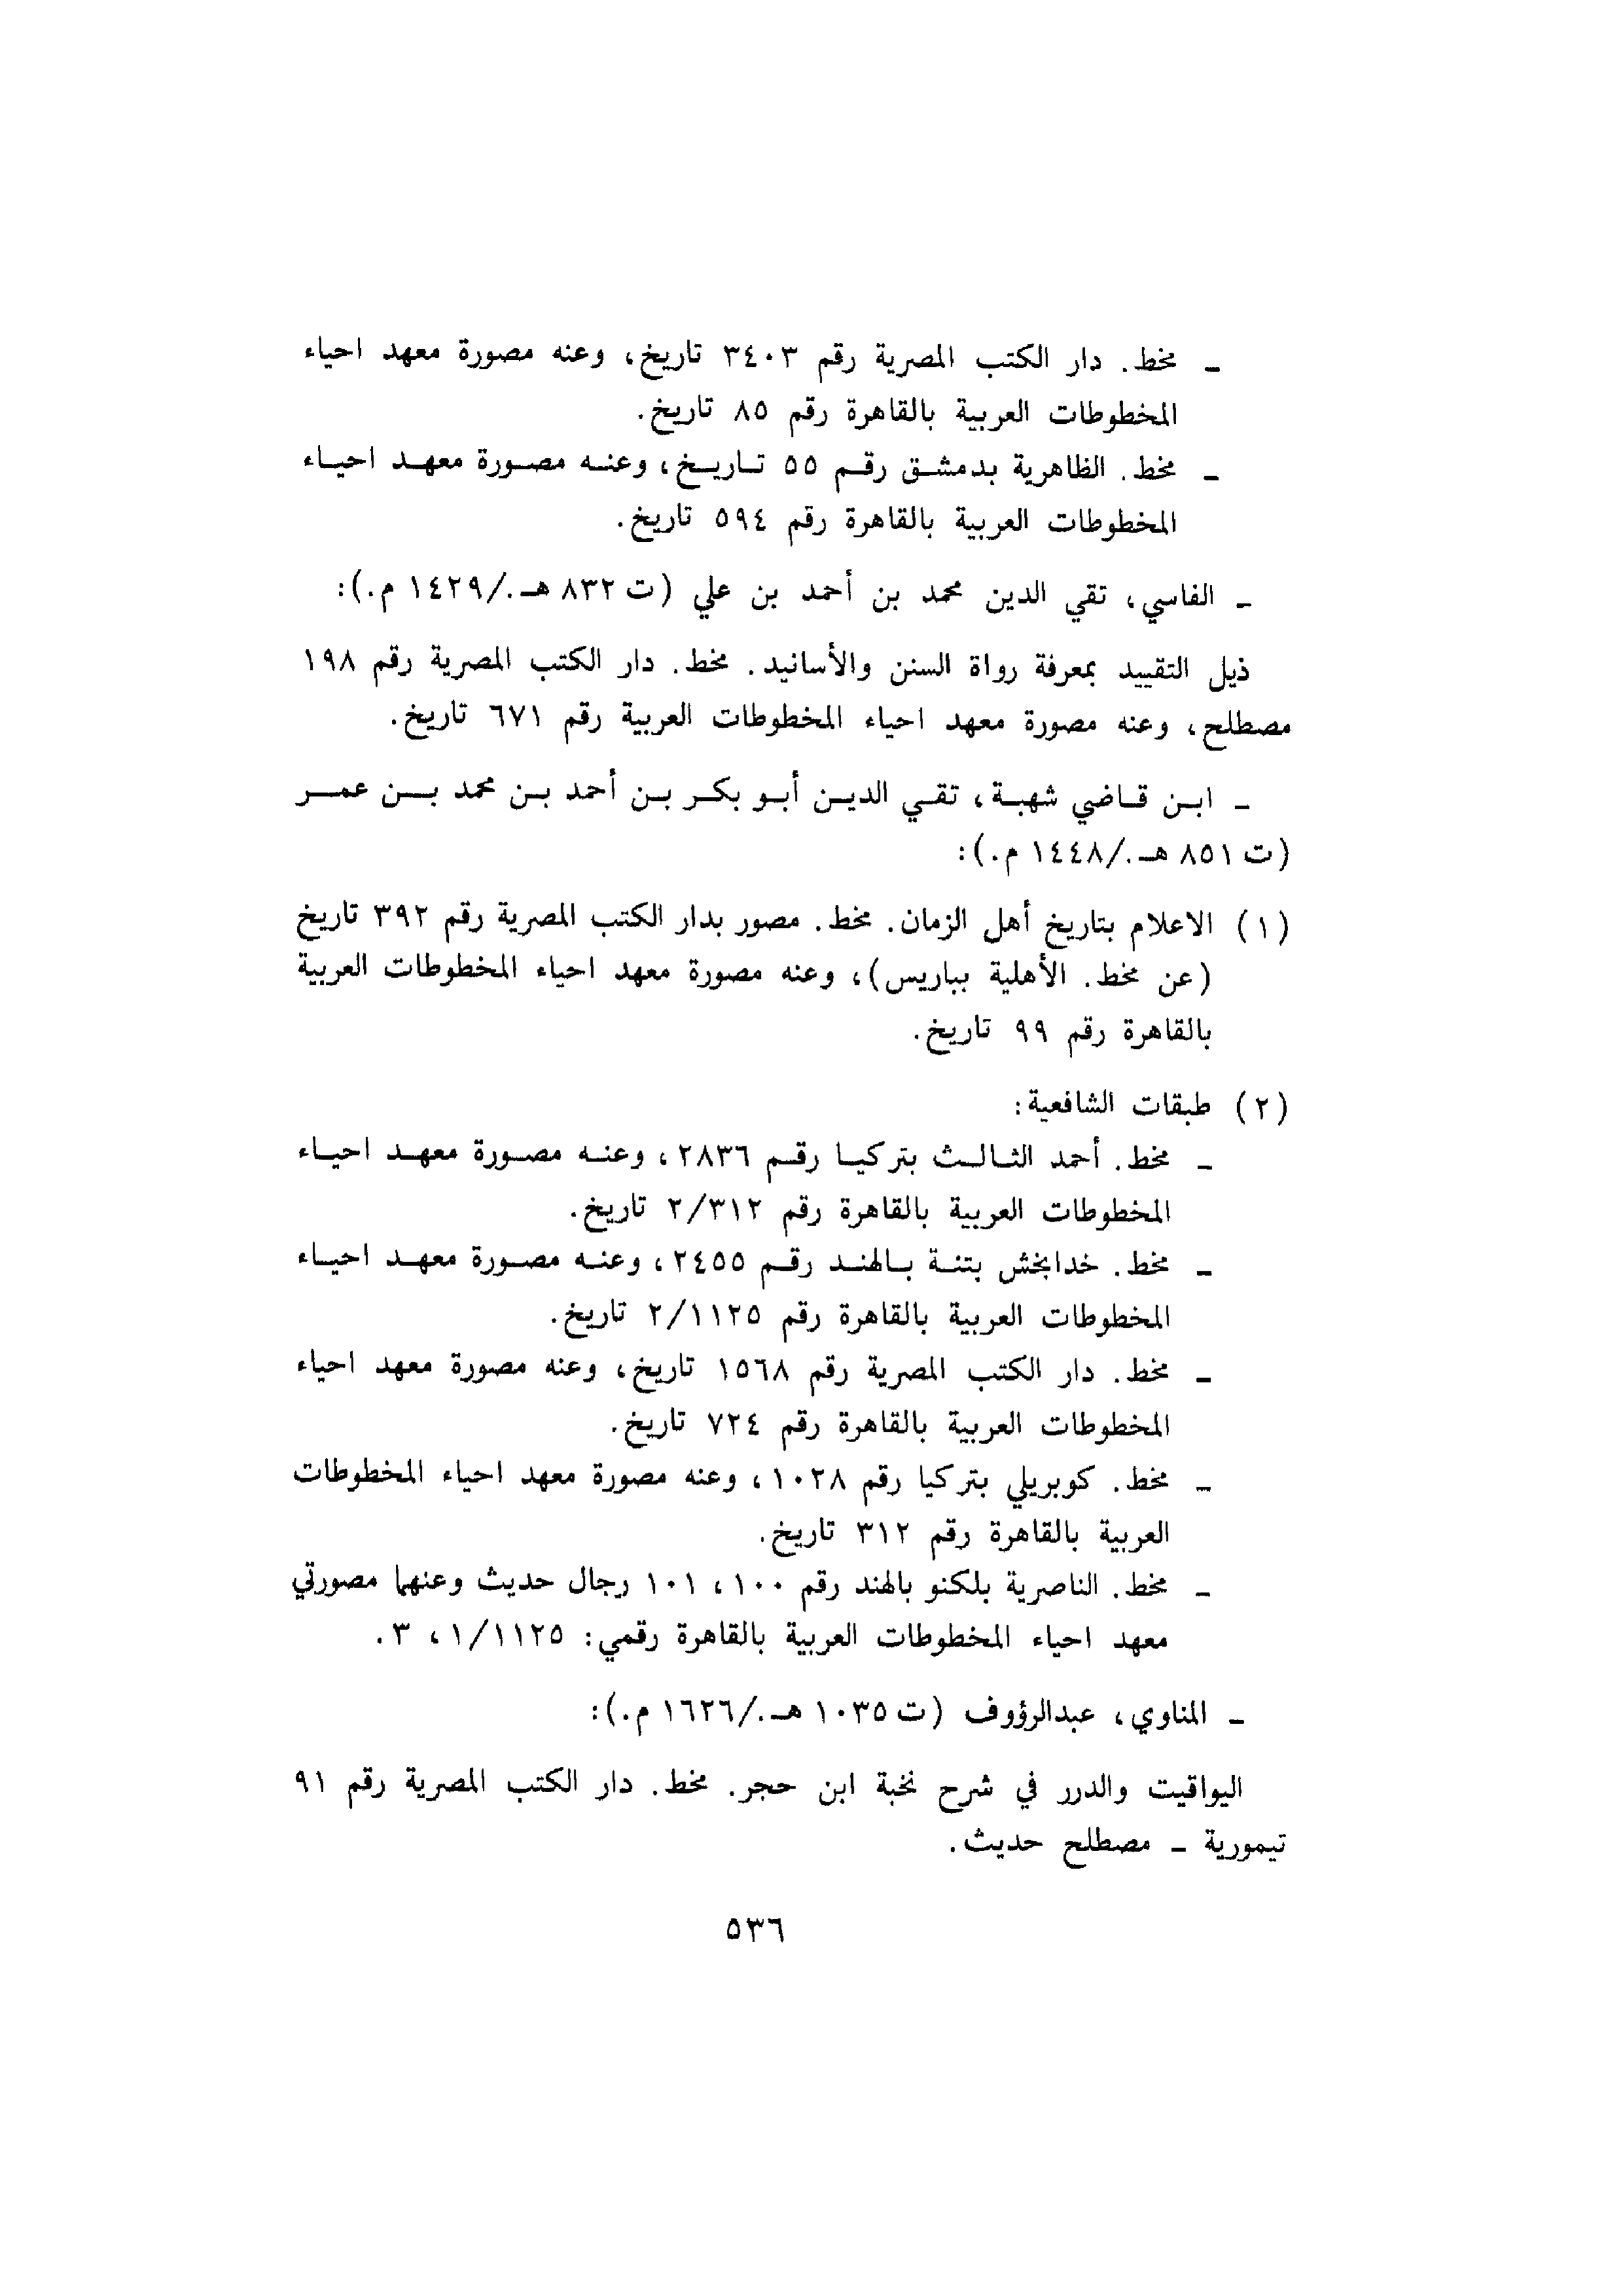 ـ مخط. دار الكتب المصرية رقم ٣٤٠٣ تاريخ، وعنه مصورة معهد احياء
المخطوطات العربية بالقاهرة رقم ٨٥ تاريخ.
ـ مخط. الظاهرية بدمشق رقم ٥٥ تاريخ، وعنه مصورة معهد احياء
المخطوطات العربية بالقاهرة رقم ٥٩٤ تاريخ.
ـ الفاسي، تقي الدين محمد بن أحمد بن علي (ت ٨٣٢ هـ./١٤٢٩ م.):
ذيل التقييد بمعرفة رواة السنن والأسانيد. مخط. دار الكتب المصرية رقم ١٩٨
مصطلح، وعنه مصورة معهد احياء المخطوطات العربية رقم ٦٧١ تاريخ.
ـ ابن قاضي شهبة، تقي الدين أبو بكر بن أحمد بن محمد بن عمر
(ت ٨٥١ هـ./١٤٤٨ م.):
(١) الاعلام بتاريخ أهل الزمان. مخط. مصور بدار الكتب المصرية رقم ٣٩٢ تاريخ
(عن مخط. الأهلية بباريس)، وعنه مصورة معهد احياء المخطوطات العربية
بالقاهرة رقم ٩٩ تاريخ.
(٢) طبقات الشافعية:
ـ مخط. أحمد الثالث بتركيا رقم ٢٨٣٦، وعنه مصورة معهد احياء
المخطوطات العربية بالقاهرة رقم ٢/٣١٢ تاريخ.
ـ مخط. خدابخش بتنة بالهند رقم ٢٤٥٥، وعنه مصورة معهد احياء
المخطوطات العربية بالقاهرة رقم ٢/١١٢٥ تاريخ.
ـ مخط. دار الكتب المصرية رقم ١٥٦٨ تاريخ، وعنه مصورة معهد احياء
المخطوطات العربية بالقاهرة رقم ٧٢٤ تاريخ.
ـ مخط. كوبريلي بتركيا رقم ١٠٢٨، وعنه مصورة معهد احياء المخطوطات
العربية بالقاهرة رقم ٣١٢ تاريخ.
ـ مخط. الناصرية بلكنو بالهند رقم ١٠٠، ١٠١ رجال حديث وعنهما مصورتي
معهد احياء المخطوطات العربية بالقاهرة رقمي: ١/١١٢٥، ٣.
ـ المناوي، عبدالرؤوف (ت ١٠٣٥ هـ./١٦٢٦ م.):
اليواقيت والدرر في شرح نخبة ابن حجر. مخط. دار الكتب المصرية رقم ٩١
تيمورية ـ مصطلح حديث.
٥٣٦